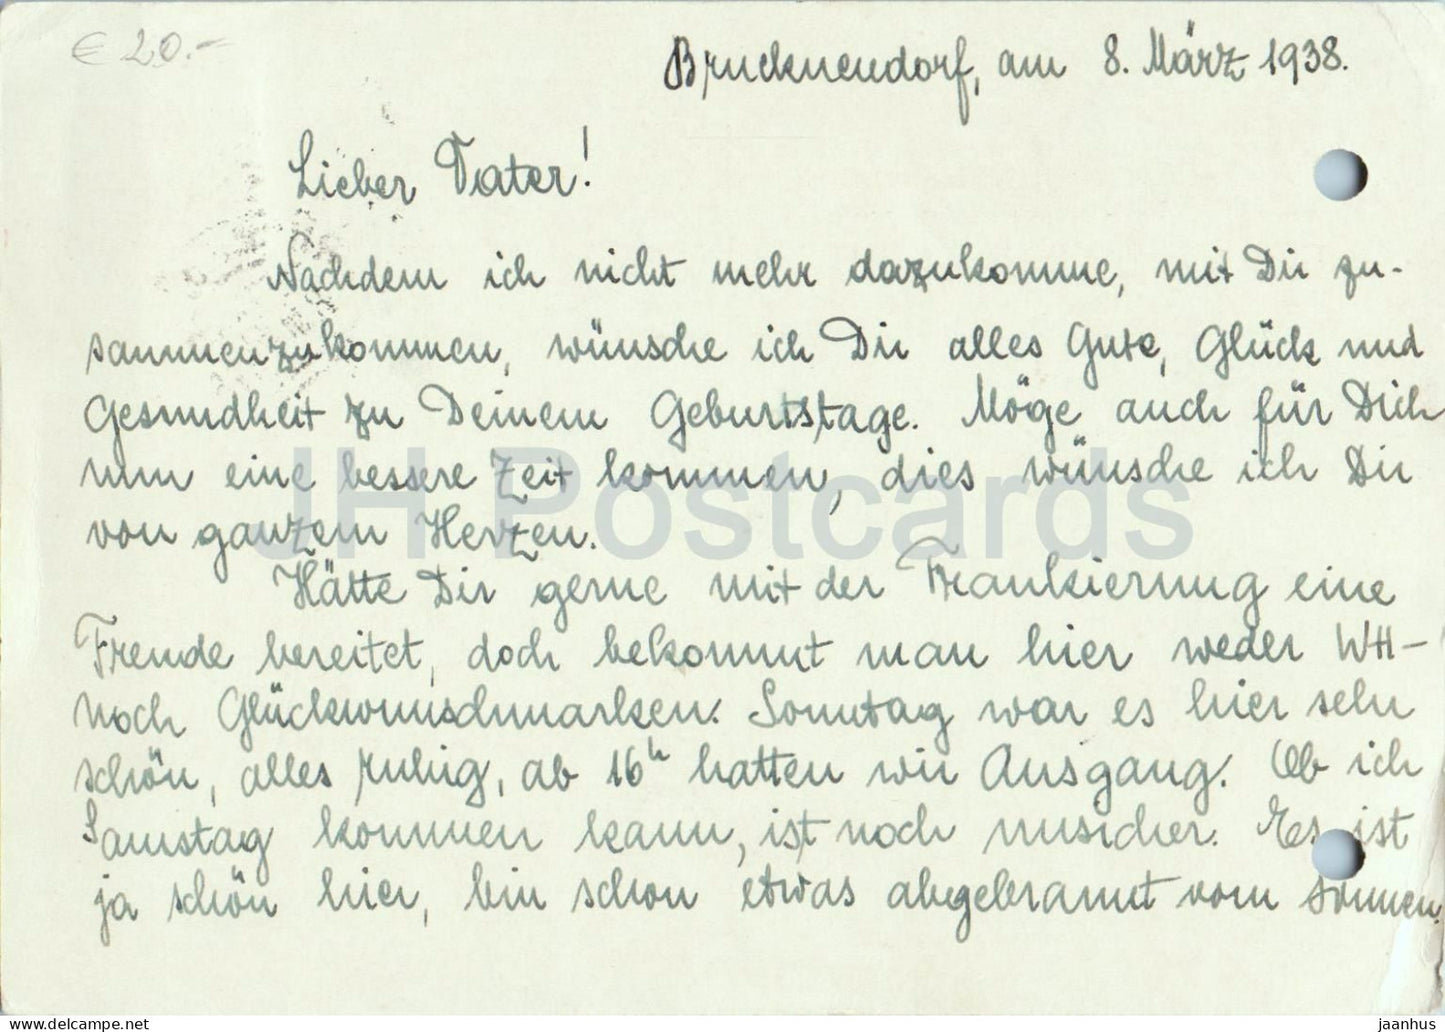 € 20.-
Brucknendorf, am 8. März 1938.
Lieber Vater!
Nachdem ich nicht mehr dazukomme, mit Dir zu-
sammenzukommen, wünsche ich Dir alles Gute, Glück und
Gesundheit zu Deinem Geburtstage. Möge auch für Dich
nun eine bessere Zeit kommen, dies wünsche ich Dir
von ganzem Herzen.
Hätte Dir gerne mit der Frankierung eine
Freude bereitet, doch bekommt man hier weder WH-
noch Glückwunschmarken. Sonntag war es hier sehr
schön, alles ruhig, ab 16h hatten wir Ausgang. Ob ich
Samstag kommen kann, ist noch unsicher. Es ist
ja schön hier, bin schon etwas abgebrannt vom Sonnen.
JH Postcards
delcampe.net
jaanhus